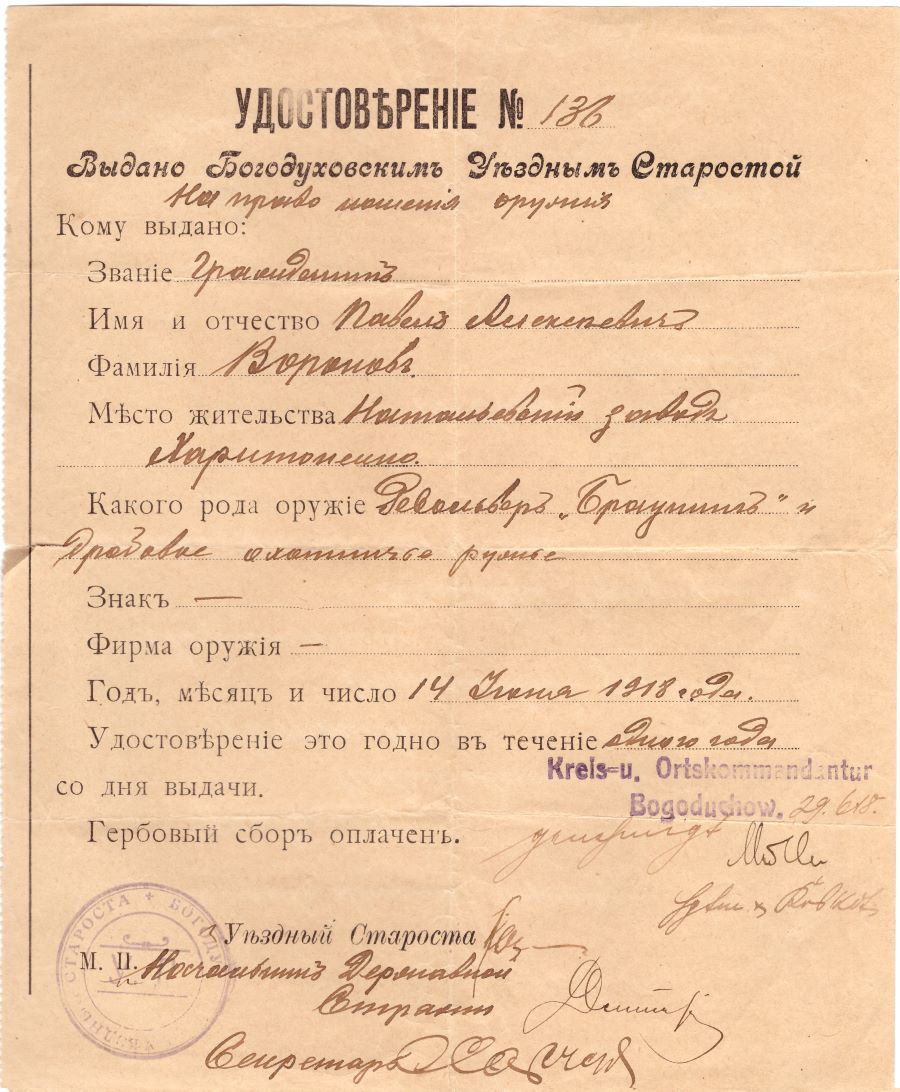 УДОСТОВѢРЕНІЕ № 136
Выдано Богодуховскимъ Уѣзднымъ Старостой
На право ношенія оружія
Кому выдано:
Званіе Гражданинъ
Имя и отчество Павелъ Алексѣевичъ
Фамилія Вороновъ.
Мѣсто жительства Натальевскій заводъ
Харитоненко.
Какого рода оружіе Револьверъ „Браунингъ" и
Дробовое охотничье ружье
Знакъ —
Фирма оружія —
Годъ, мѣсяцъ и число 14 Іюня 1918 года.
Удостовѣреніе это годно въ теченіе одного года
со дня выдачи.
Kreis=u. Ortskommandantur
Bogoduchow. 29.6.18.
Гербовый сборъ оплаченъ.
genehmigt
СТАРОСТА + БОГОДУ
Уѣздный Староста
М. П. Начальникъ Державной
Стражи
Секретарь